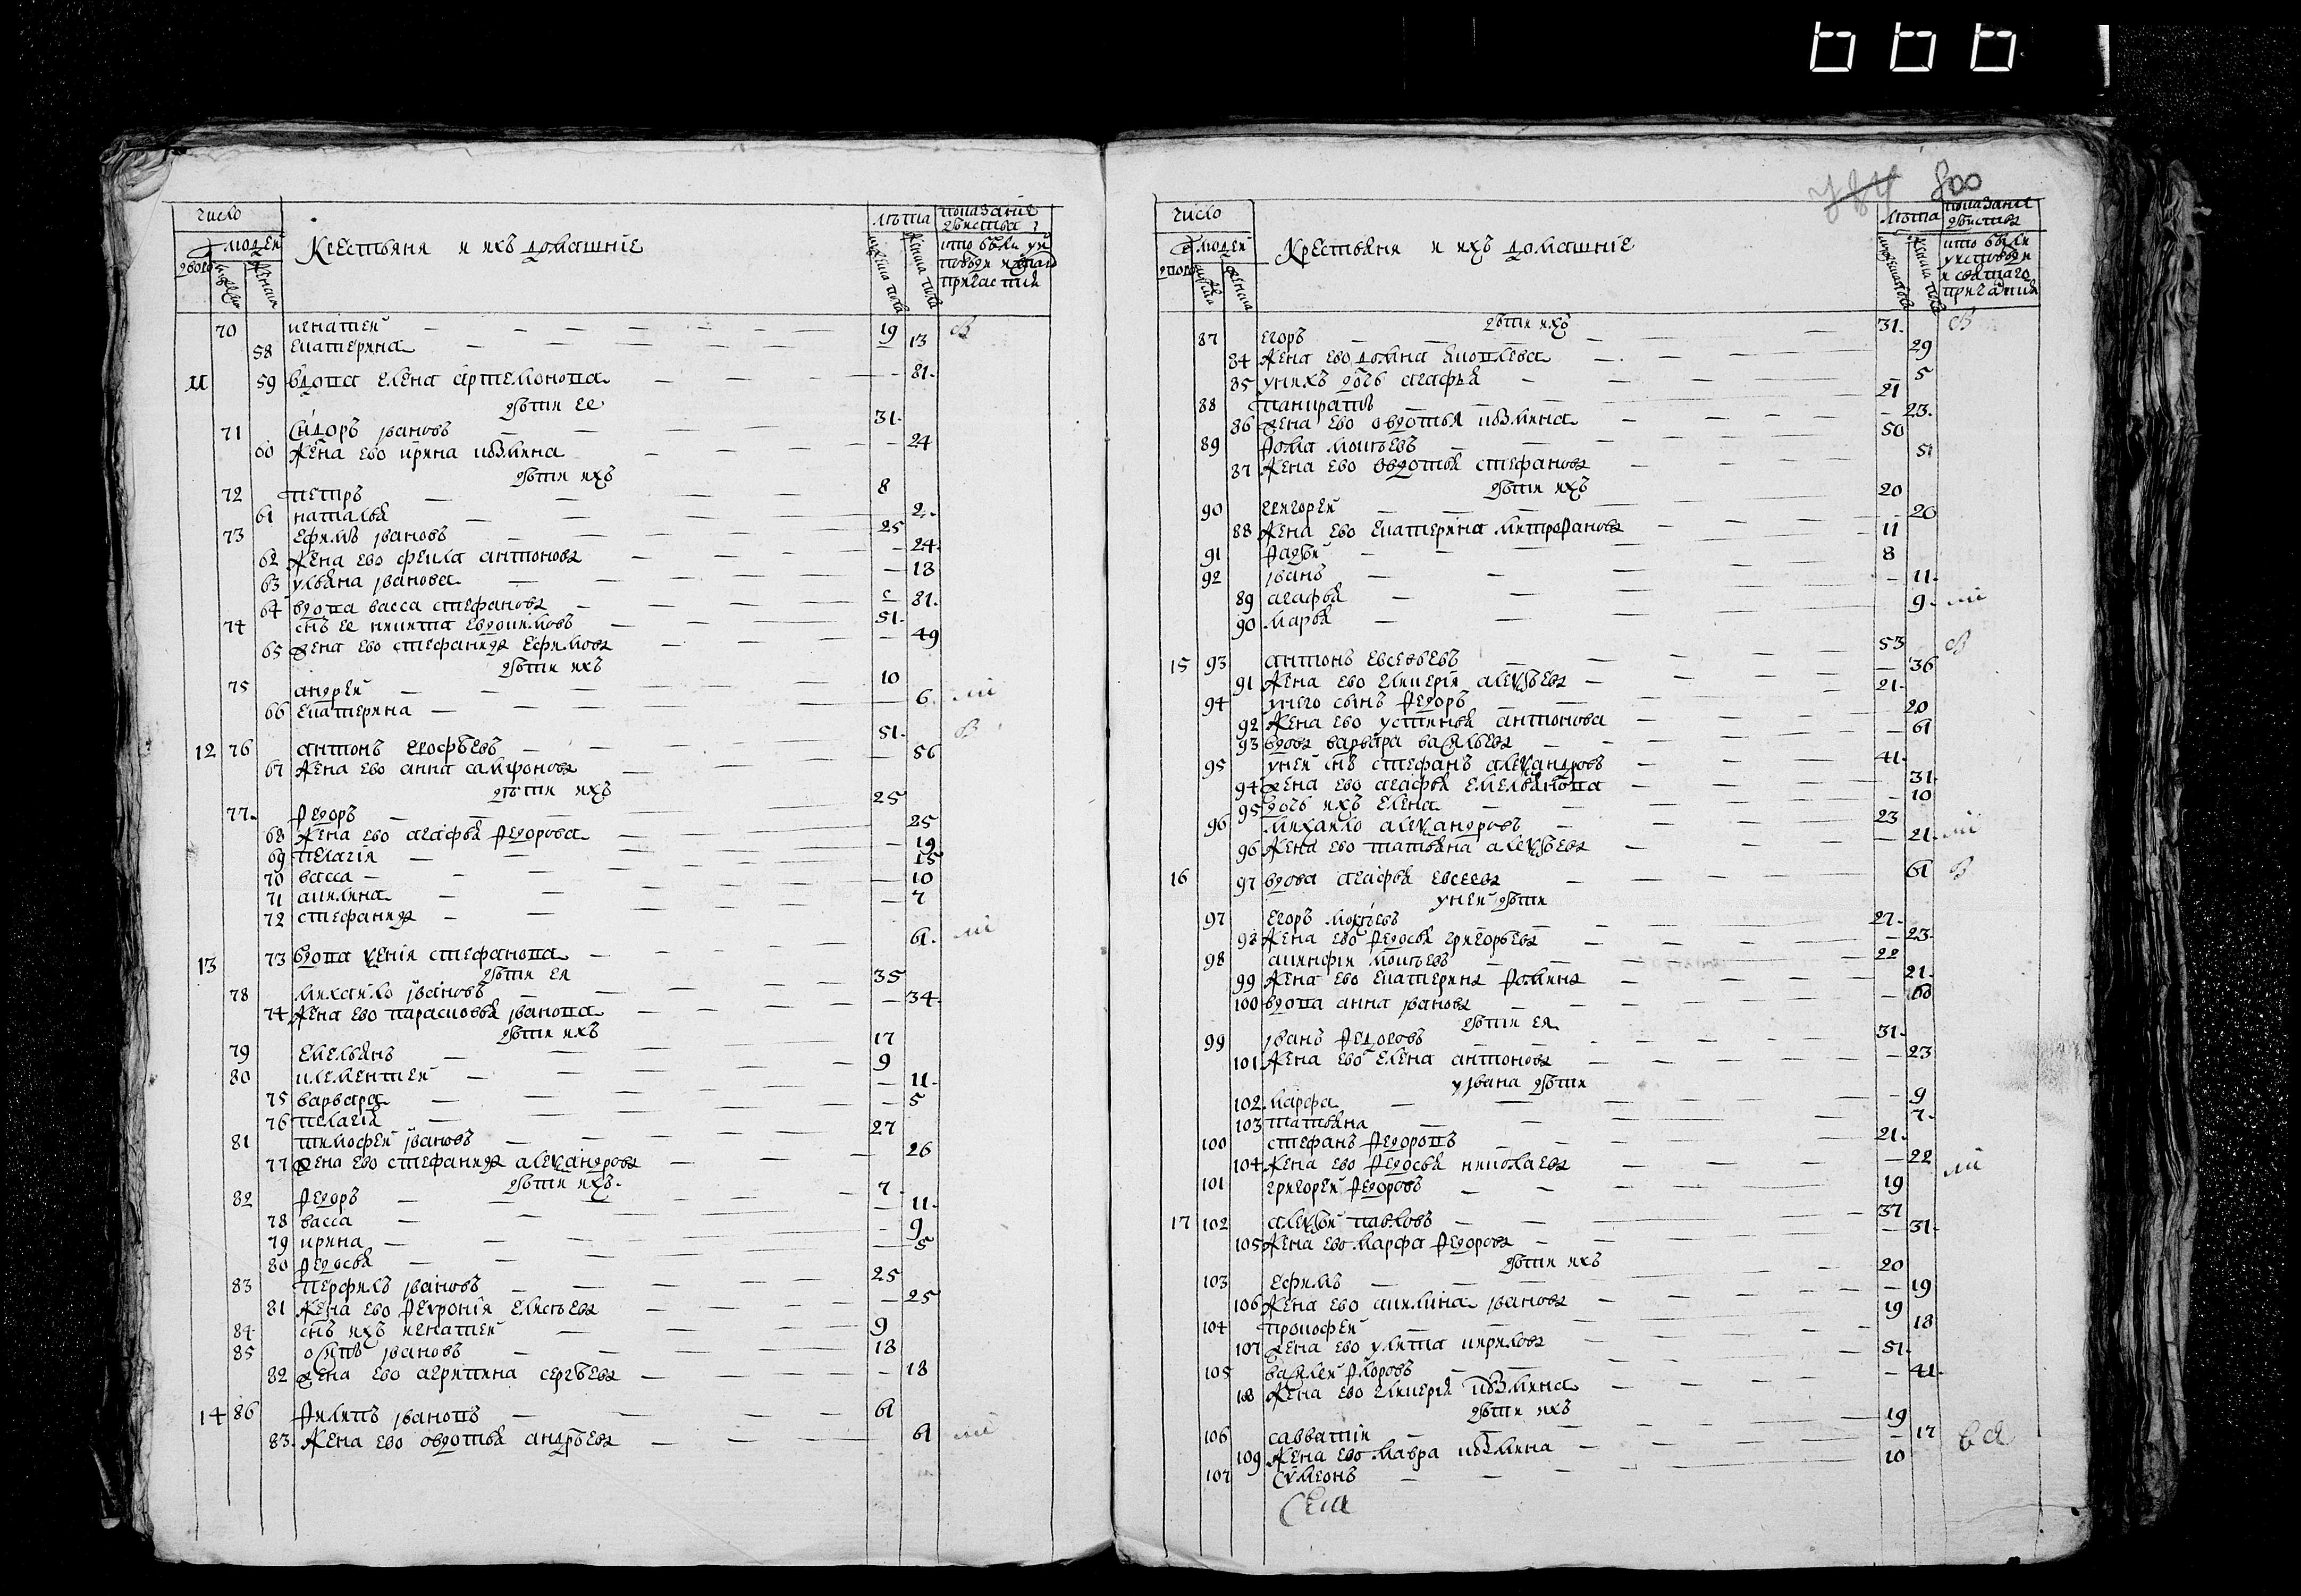 число
людей
двор
мужеска
женска
Крестьяня и ихъ домашние
лѣта
мужеска пола
женска пола
показание
дѣиства
кто были у и
поведи и стаго
причастия
70 игнатеи 19 В
58 екатерина 13
11 59 вдова елена артемонова 81
дѣти ее
71 сидоръ ивановъ 31
60 жена ево ирина кузмина 24
дѣти ихъ
72 петръ 8
61 наталья 2
73 ефимъ ивановъ 25
62 жена ево фекла антонова 24
63 ульяна иванова 18
64 вдова васса стефанова 81
74 снъ ее никита евдокимовъ 51
65 жена ево стефанида ефимова 49
дѣти ихъ
75 андреи 10
66 екатерина 6
12 76 антонъ ерофѣевъ 51 В
67 жена ево анна самфонова 56
дѣти ихъ
77 федоръ 25
68 жена ево агафья федорова 25
69 пелагия 19
70 васса 15
71 акилина 10
72 стефанида 7
13 73 вдова ксения стефанова 61
дѣти ея
78 михаило ивановъ 35
74 жена ево парасковья иванова 34
дѣти ихъ
79 емельянъ 17
80 клементеи 9
75 варвара 11
76 пелагия 5
81 тимофеи ивановъ 27
77 жена ево стефанида александрова 26
дѣти ихъ
82 федоръ 7
78 васса 11
79 ирина 9
80 федосья 5
83 перфилъ ивановъ 25
81 жена ево феврония елисѣева 25
84 снъ ихъ игнатеи 9
85 осипъ ивановъ 18
82 жена ево агрипина сергѣева 18
14 86 филипъ ивановъ 61
83 жена ево овдотья андрѣева 61
784 800
число
людей
двор
мужеска
женска
Крестьяня и ихъ домашние
лѣта
мужеска пола
женска пола
показание
дѣиства
кто были
у исповѣди
и святаго
причастия
дѣти ихъ
87 егоръ 31 В
84 жена ево домна яковлева 29
85 у нихъ дочь агафья 5
88 панкратъ 21
86 жена ево овдотья кузмина 23
89 фома мокѣевъ 50
87 жена ево овдотья стефанова 51
дѣти ихъ
90 григореи 20
88 жена ево екатерина митрофанова 20
91 фадѣи 11
92 иванъ 8
89 агафья 11
90 марья 9
15 93 антонъ евсевьевъ 53 В
91 жена ево гликерия алексѣева 36
94 у него сынъ федоръ 21
92 жена ево устинья антонова 20
93 вдова варвара васильева 61
95 у неи снъ стефанъ александровъ 41
94 жена ево агафья емельянова 31
95 дочь ихъ елена 10
96 михаило александровъ 23
96 жена ево татьяна алексѣева 21
16 97 вдова агафья евсеева 61 В
у неи дѣти
97 егоръ мокѣевъ 27
98 жена ево федосья григорьева 23
98 акинфии мокѣевъ 22
99 жена ево екатерина фомина 21
100 вдова анна иванова 60
дѣти ея
99 иванъ федоровъ 31
101 жена ево елена антонова 23
у ивана дѣти
102 марфа 9
103 татьяна 7
100 стефанъ федоровъ 21
104 жена ево федосья николаева 22
101 григореи федоровъ 19
17 102 алексѣи павловъ 37
105 жена ево марфа федорова 31
дѣти ихъ
103 ефимъ 20
106 жена ево акилина иванова 19
104 прокофеи 19
107 жена ево улита кирилова 18
105 василеи флоровъ 51
108 жена ево гликерия кузмина 41
дѣти ихъ
106 савватии 19
109 жена ево мавра кузмина 17
107 сѵмеонъ 10